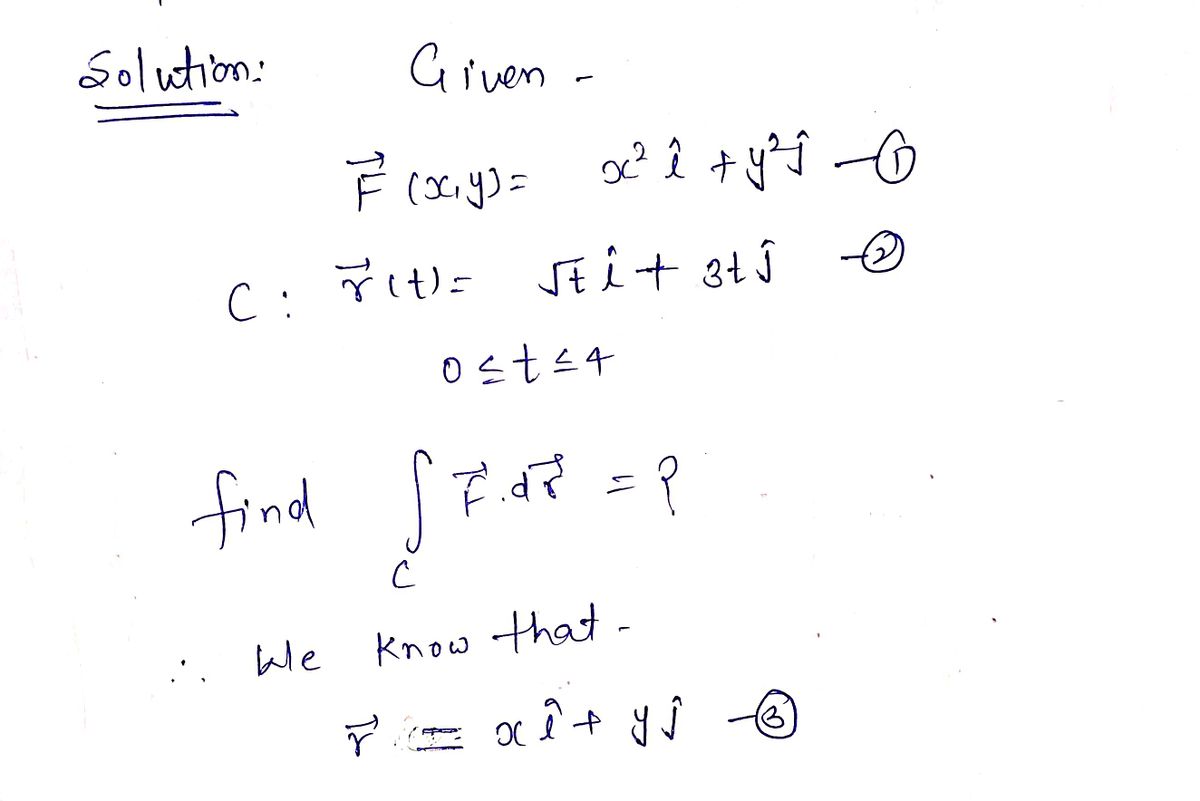 Solution: Given -
F⃗ (x,y) = x² î + y² ĵ —①
C : r⃗(t) = √t î + 3t ĵ —②
0 ≤ t ≤ 4
find ∫_C F⃗.dr⃗ = ?
∴ We know that -
r⃗ = x î + y ĵ —③